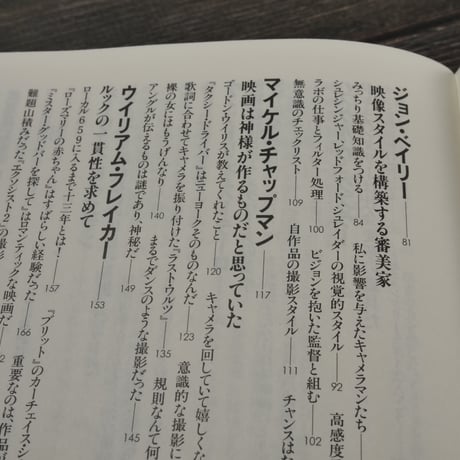 ジョン・ベイリー――81
映像スタイルを構築する審美家
みっちり基礎知識をつける――84 私に影響を与えたキャメラマンたち――
シュレシンジャー、レッドフォード、シュレイダーの視覚的スタイル――92 高感度
ラボの仕事とフィルター処理――100 ビジョンを抱いた監督と組む――102
無意識のチェックリスト――109 自作品の撮影スタイル――111 チャンスはお
マイケル・チャップマン――117
映画は神様が作るものだと思っていた
ゴードン・ウイリスが教えてくれたこと――120 キャメラを回していて嬉しくな
『タクシードライバー』はニューヨークそのものなんだ――123 意識的な撮影に
歌詞に合わせてキャメラを振り付けた『ラスト・ワルツ』――135 規則なんて何
裸の女にはもうげんなり――140 まるでダンスのような撮影だった――145
アングルが伝えるものは謎であり、神秘だ――149
ウイリアム・フレイカー――153
ルックの一貫性を求めて
ローカル659に入るまで十三年とは！――157 『ブリット』のカーチェイス・シ
『ローズマリーの赤ちゃん』はすばらしい経験だった――
『ミスター・グッドバーを探して』はロマンティックな映画だ――166 重要なのは、作品が
難題山積みだった『エクソシスト2』の撮影